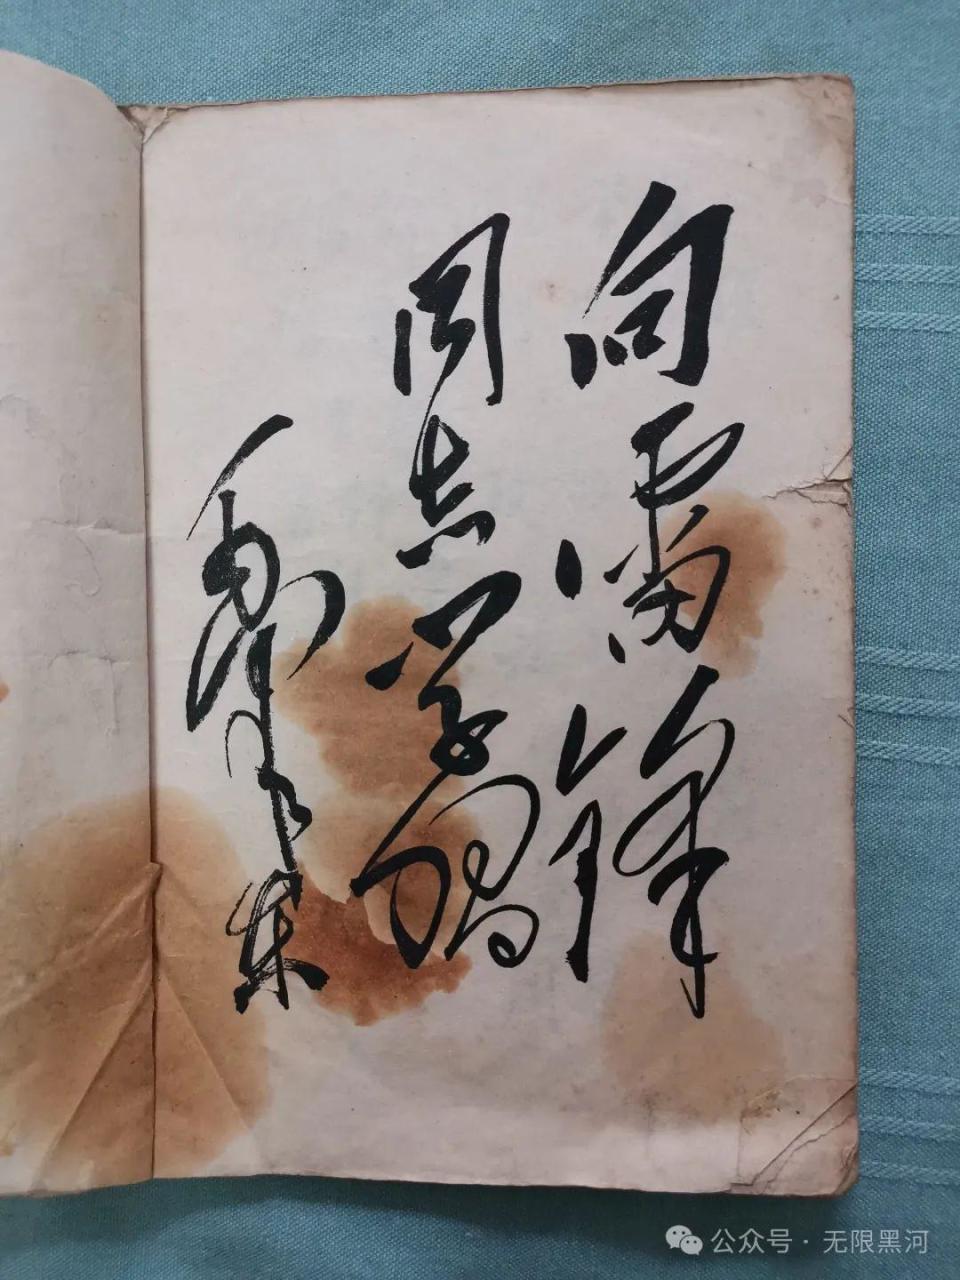 向雷锋
同志学习
毛泽东
公众号·无限黑河